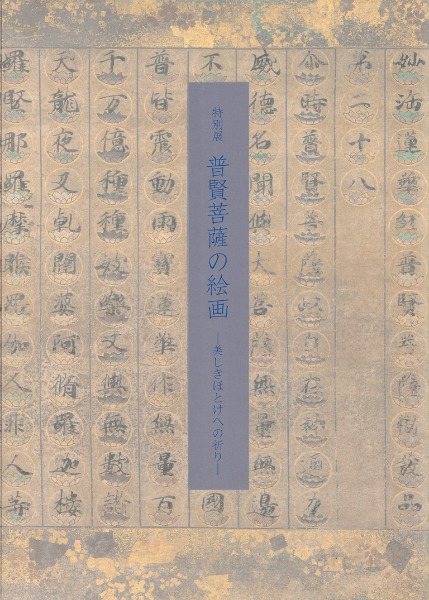 妙法蓮華經普賢菩薩勸發品
第二十八
尒時普賢菩薩以自在神通力
威德名聞與大菩薩無量無邊
不
國
特別展
普賢菩薩の絵画
―美しきほとけへの祈り―
普皆震動雨寶蓮華作無量百
千万億種種妓樂又與無數諸
天龍夜叉乾闥婆阿脩羅迦樓
羅緊那羅摩睺羅伽人非人等